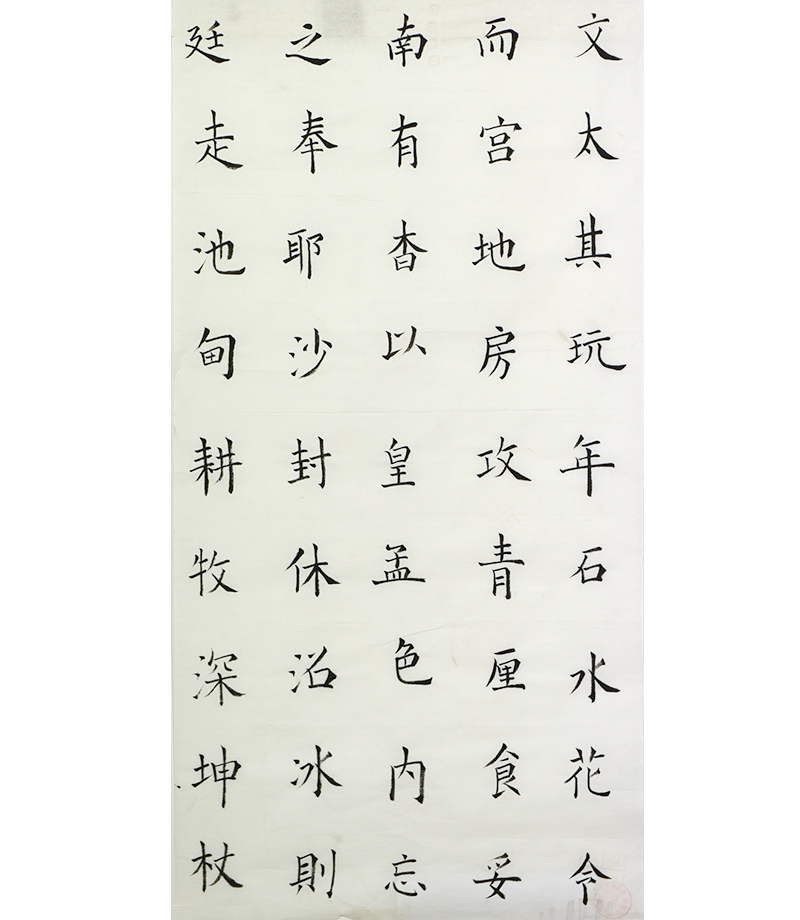 文太其玩年石水花令
而宫地房攻青厘食妥
南有杳以皇孟色内忘
之奉耶沙封休沿冰則
廷走池甸耕牧深坤杖